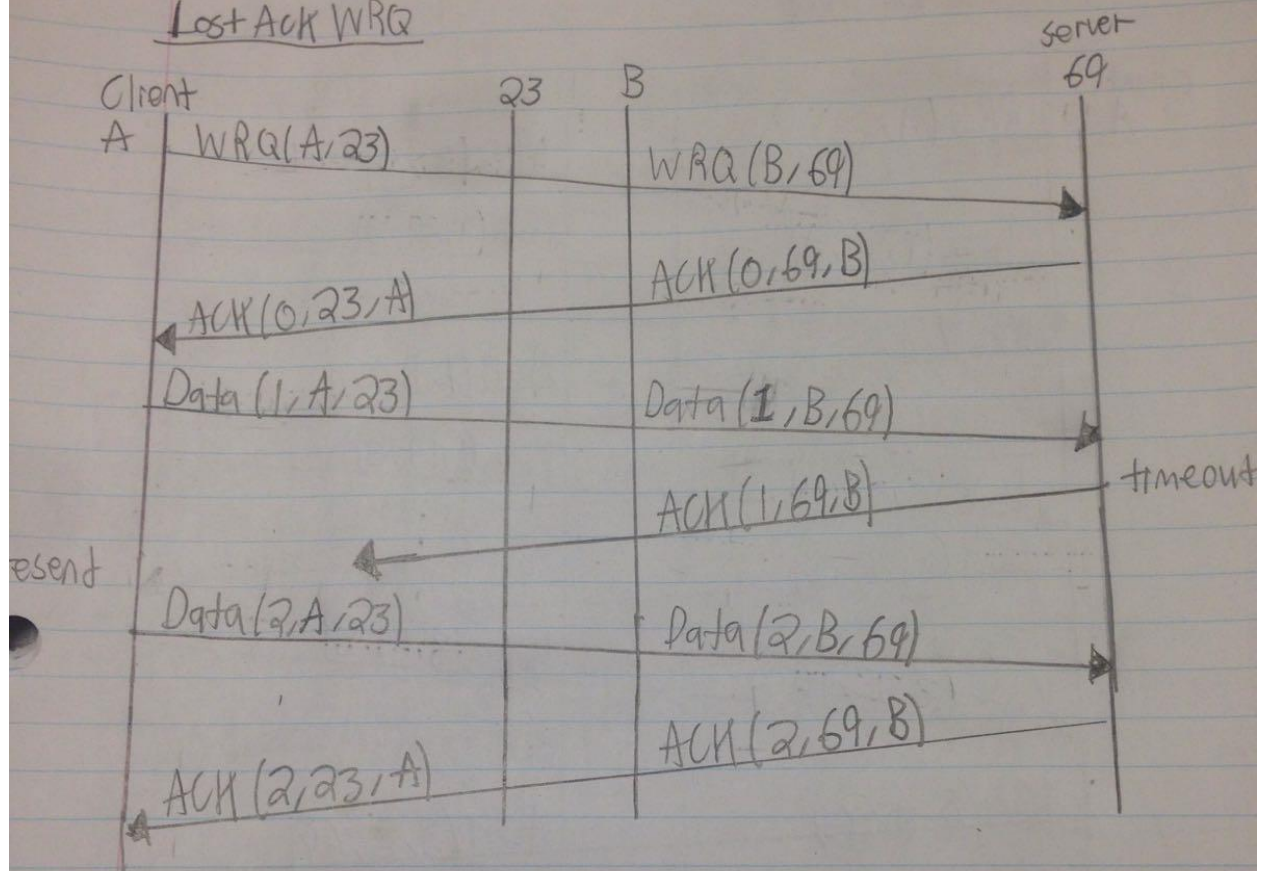 Lost Ack WRQ
server
Client 23 B 69
A WRQ(A,23)
WRQ(B,69)
ACK(0,69,B)
ACK(0,23,A)
Data(1,A,23) Data(1,B,69)
timeout
ACK(1,69,B)
esend
Data(2,A,23) Data(2,B,69)
ACK(2,69,B)
ACK(2,23,A)